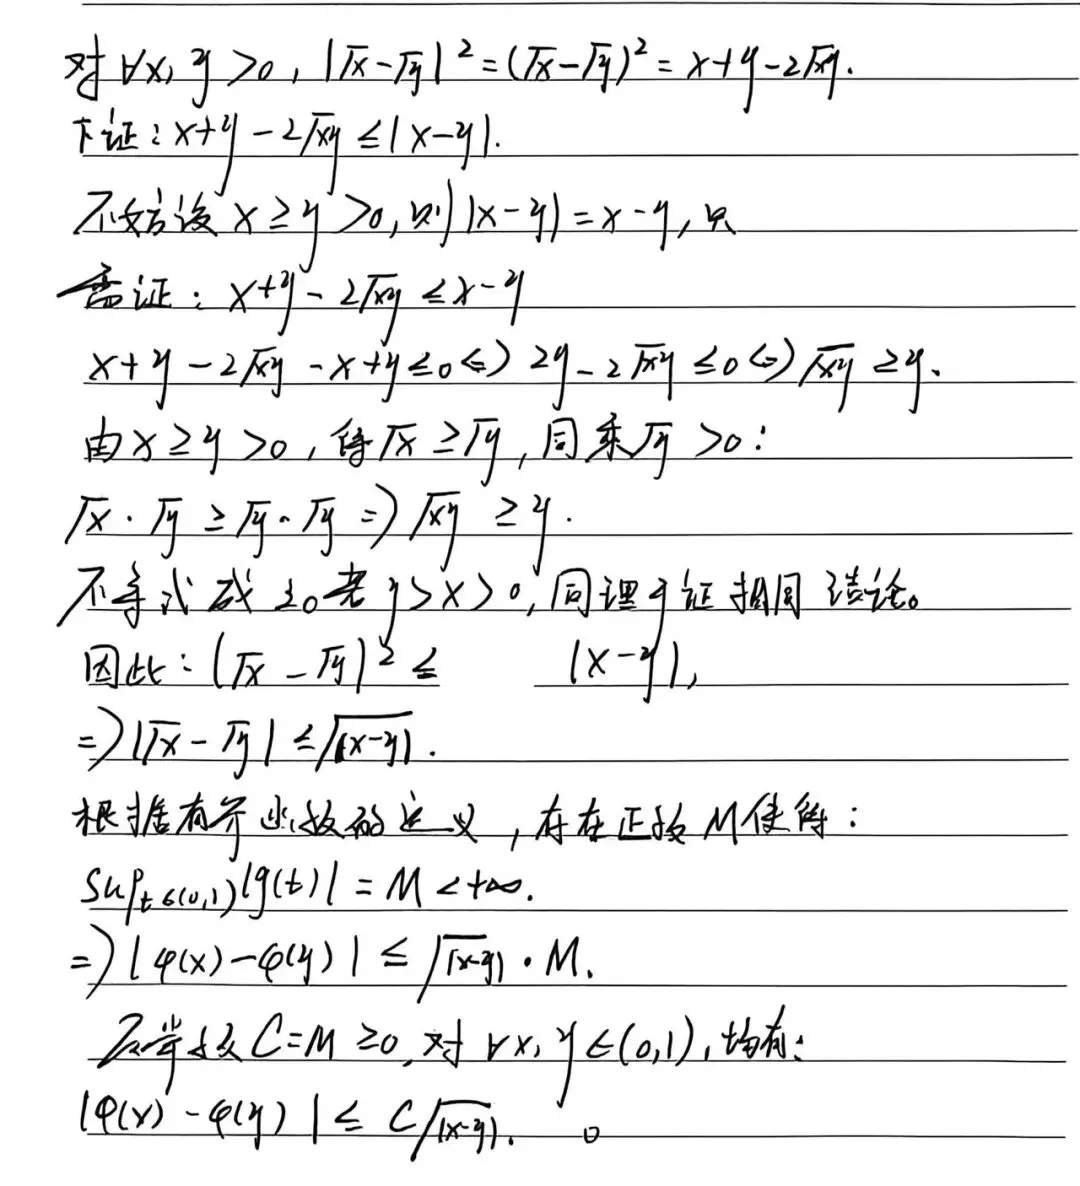 对∀x, y>0, |√x-√y|²=(√x-√y)²=x+y-2√xy.
下证：x+y-2√xy≤|x-y|.
不妨设x≥y>0,则|x-y|=x-y,只
需证：x+y-2√xy≤x-y
x+y-2√xy-x+y≤0⇔2y-2√xy≤0⇔√xy≥y.
由x≥y>0,得√x≥√y,同乘√y>0：
√x·√y≥√y·√y⇒√xy≥y.
不等式成立。若y>x>0,同理可证相同结论。
因此：(√x-√y)²≤|x-y|,
⇒|√x-√y|≤√|x-y|.
根据有界函数的定义,存在正数M使得：
Sup_{t∈(0,1)}|g(t)|=M<+∞.
⇒|φ(x)-φ(y)|≤√|x-y|·M.
常数C=M≥0,对∀x,y∈(0,1),均有：
|φ(x)-φ(y)|≤C√|x-y|.